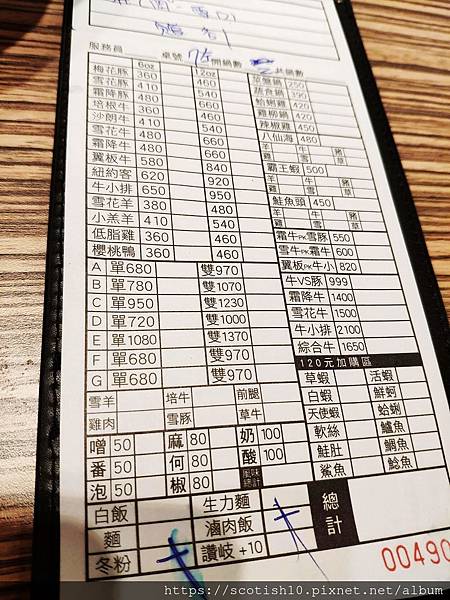 服務員 桌號 開鍋數 共鍋數
6oz 12oz
梅花豚 360 460
雪花豚 410 540
霜降豚 480 660
培根牛 360 460
沙朗牛 410 540
雪花牛 480 660
霜降牛 480 660
翼板牛 580 840
紐約客 620 920
牛小排 650 950
雪花羊 380 480
小羔羊 410 540
低脂雞 360 460
櫻桃鴨 360 460
A 單680 雙970
B 單780 雙1070
C 單950 雙1230
D 單720 雙1000
E 單1080 雙1370
F 單680 雙970
G 單680 雙970
雪羊 培牛 前腿
雞肉 雪豚 草牛
噌 50 麻 80 奶 100
番 50 何 80 酸 100
泡 50 椒 80 風味總計
白飯 生力麵
麵 滷肉飯
冬粉 讚岐 +10
總計
菜盤鍋 250
蔬食鍋 190
蛤蜊雞 420
雞柳鍋 420
辣椒雞 450
八仙海 480
羊 牛 豬
雞 雪 草
霸王蝦 500
羊 牛 豬
雞 雪 草
鮭魚頭 450
羊 牛 豬
雞 雪 草
霜牛PK雪豚 550
雪牛PK霜牛 600
翼板PK牛小 820
牛VS豚 999
霜降牛 1400
雪花牛 1500
牛小排 2100
綜合牛 1650
120元加購區
草蝦 活蝦
白蝦 鮮蚵
天使蝦 蛤蜊
軟絲 鱸魚
鮭肚 鯛魚
鯊魚 鯰魚
00490
https://scotish10.pixnet.net/album